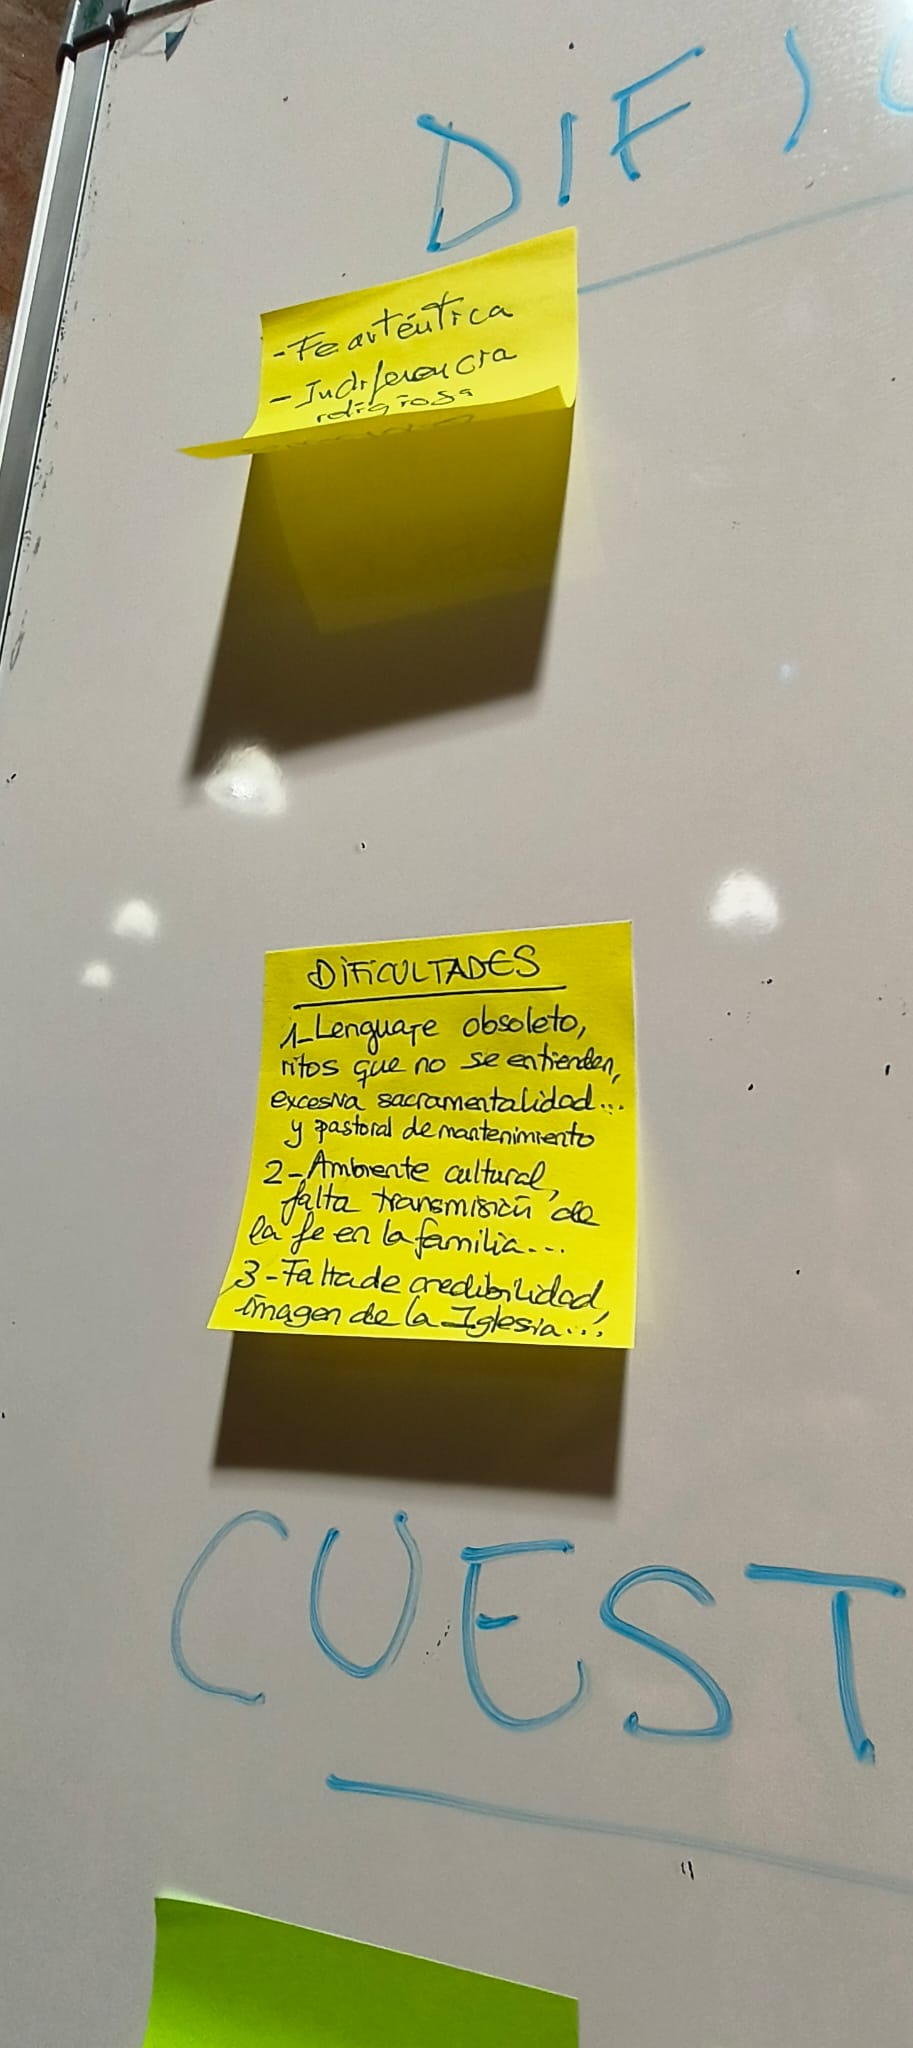 DIFIC
- Fe auténtica
- Indiferencia
religiosa
DIFICULTADES
1- Lenguaje obsoleto,
ritos que no se entienden,
excesiva sacramentalidad...
y pastoral de mantenimiento
2- Ambiente cultural,
falta transmisión de
la fe en la familia...
3- Falta de credibilidad,
imagen de la Iglesia...
CUEST